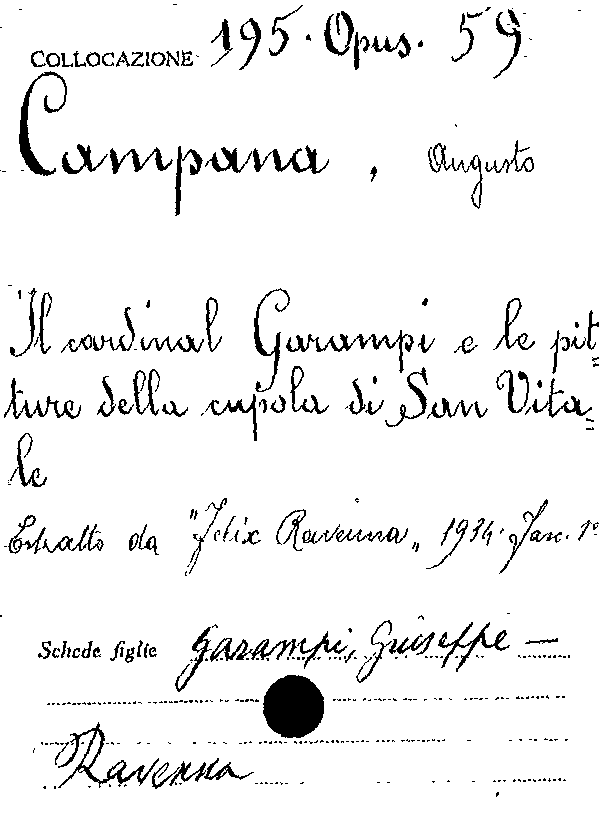 COLLOCAZIONE 195. Opus. 59
Campana, Augusto
Il cardinal Garampi e le pit=
ture della cupola di San Vita=
le
Estratto da "Felix Ravenna„ 1934. Fasc. 1º
Schede figlie Garampi, Giuseppe —
Ravenna